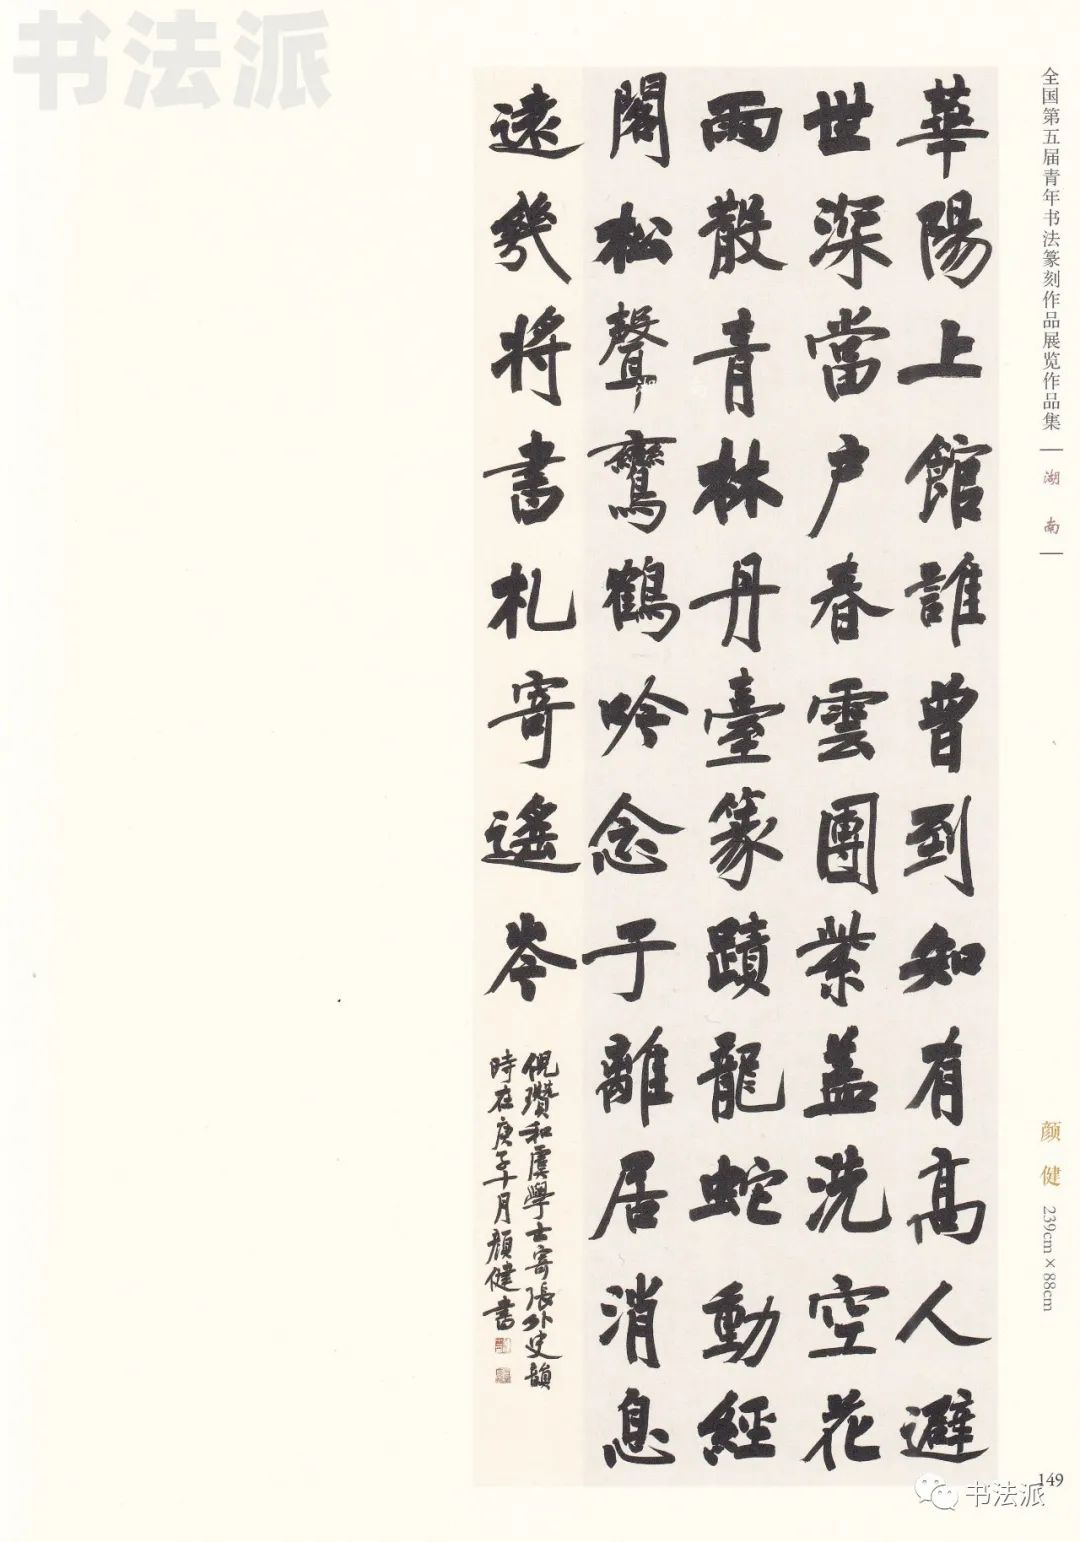 书法派
全国第五届青年书法篆刻作品展览作品集 | 湖南 |
華陽上館誰曾到知有高人避
世深當户春雲團紫盖洗空花
雨散青林丹臺篆蹟龍蛇動經
閣松聲鸞鶴吟念子離居消息
遠幾将書札寄遥岑
倪瓚和虞學士寄張外史韻
時在庚子十月顔健書
颜健 239cm×88cm
149
书法派